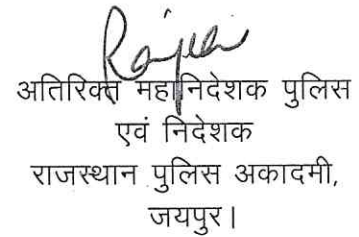 अतिरिक्त महानिदेशक पुलिस
एवं निदेशक
राजस्थान पुलिस अकादमी,
जयपुर।